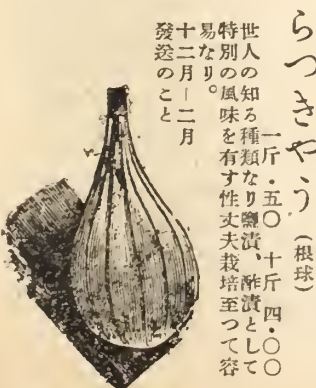 らつきやう（根球）
一斤・五〇 十斤 四・〇〇
世人の知る種類なり鹽漬、酢漬として
特別の風味を有す性丈夫栽培至つて容
易なり。
十二月―二月
發送のこと